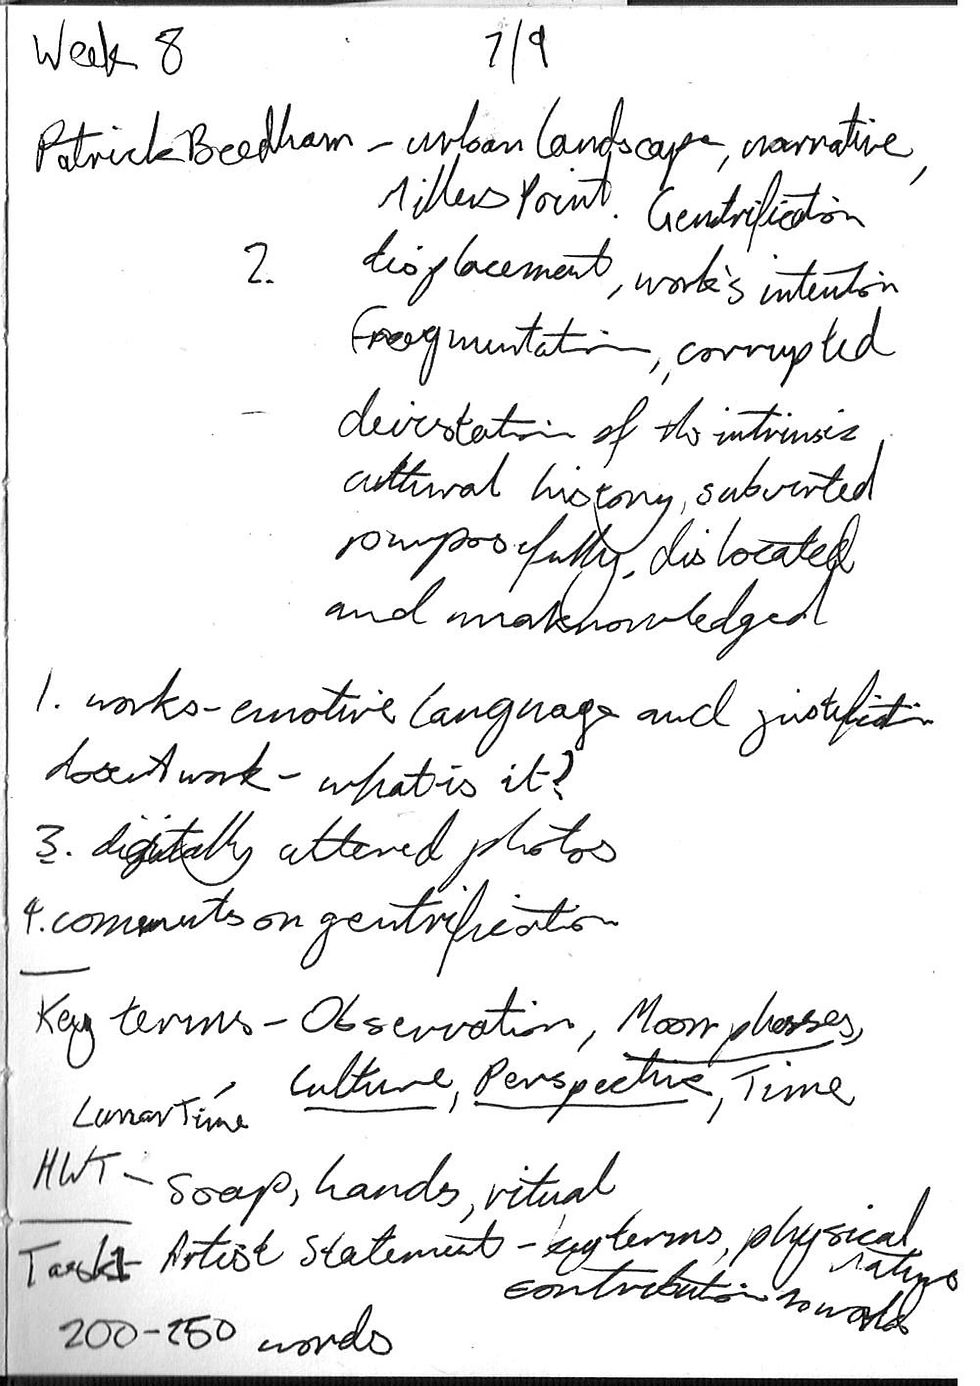 Week 8 7/9
Patrick Beedham - urban landscape, narrative,
Millers Point. Gentrification
2. displacement, work's intention
Fragmentation, corrupted
- of the intrinsic
cultural history, subverted
dislocated
and
1. works - emotive language and justification
work - what is it?
3. digitally altered photos
4. comments on gentrification
Key terms - Observation, Moon phases,
Culture, Perspective, Time
Lunar Time
HWT - Soap, hands, ritual
Task 1 - Artist Statement - key terms, physical
nature
contribution to world
200-250 words